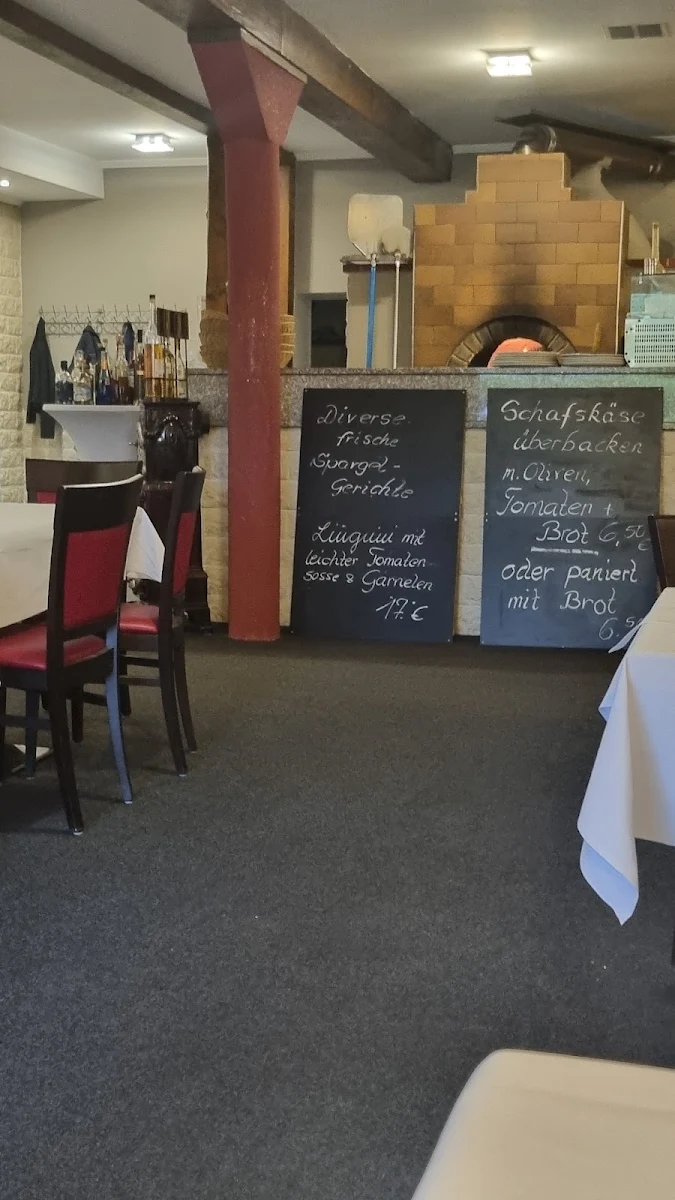 Diverse
frische
Spargel-
Gerichte
Linguini mit
leichter Tomaten-
sosse & Garnelen
17.€
Schafskäse
überbacken
m. Oliven,
Tomaten +
Brot 6,50
€
oder paniert
mit Brot
6.50